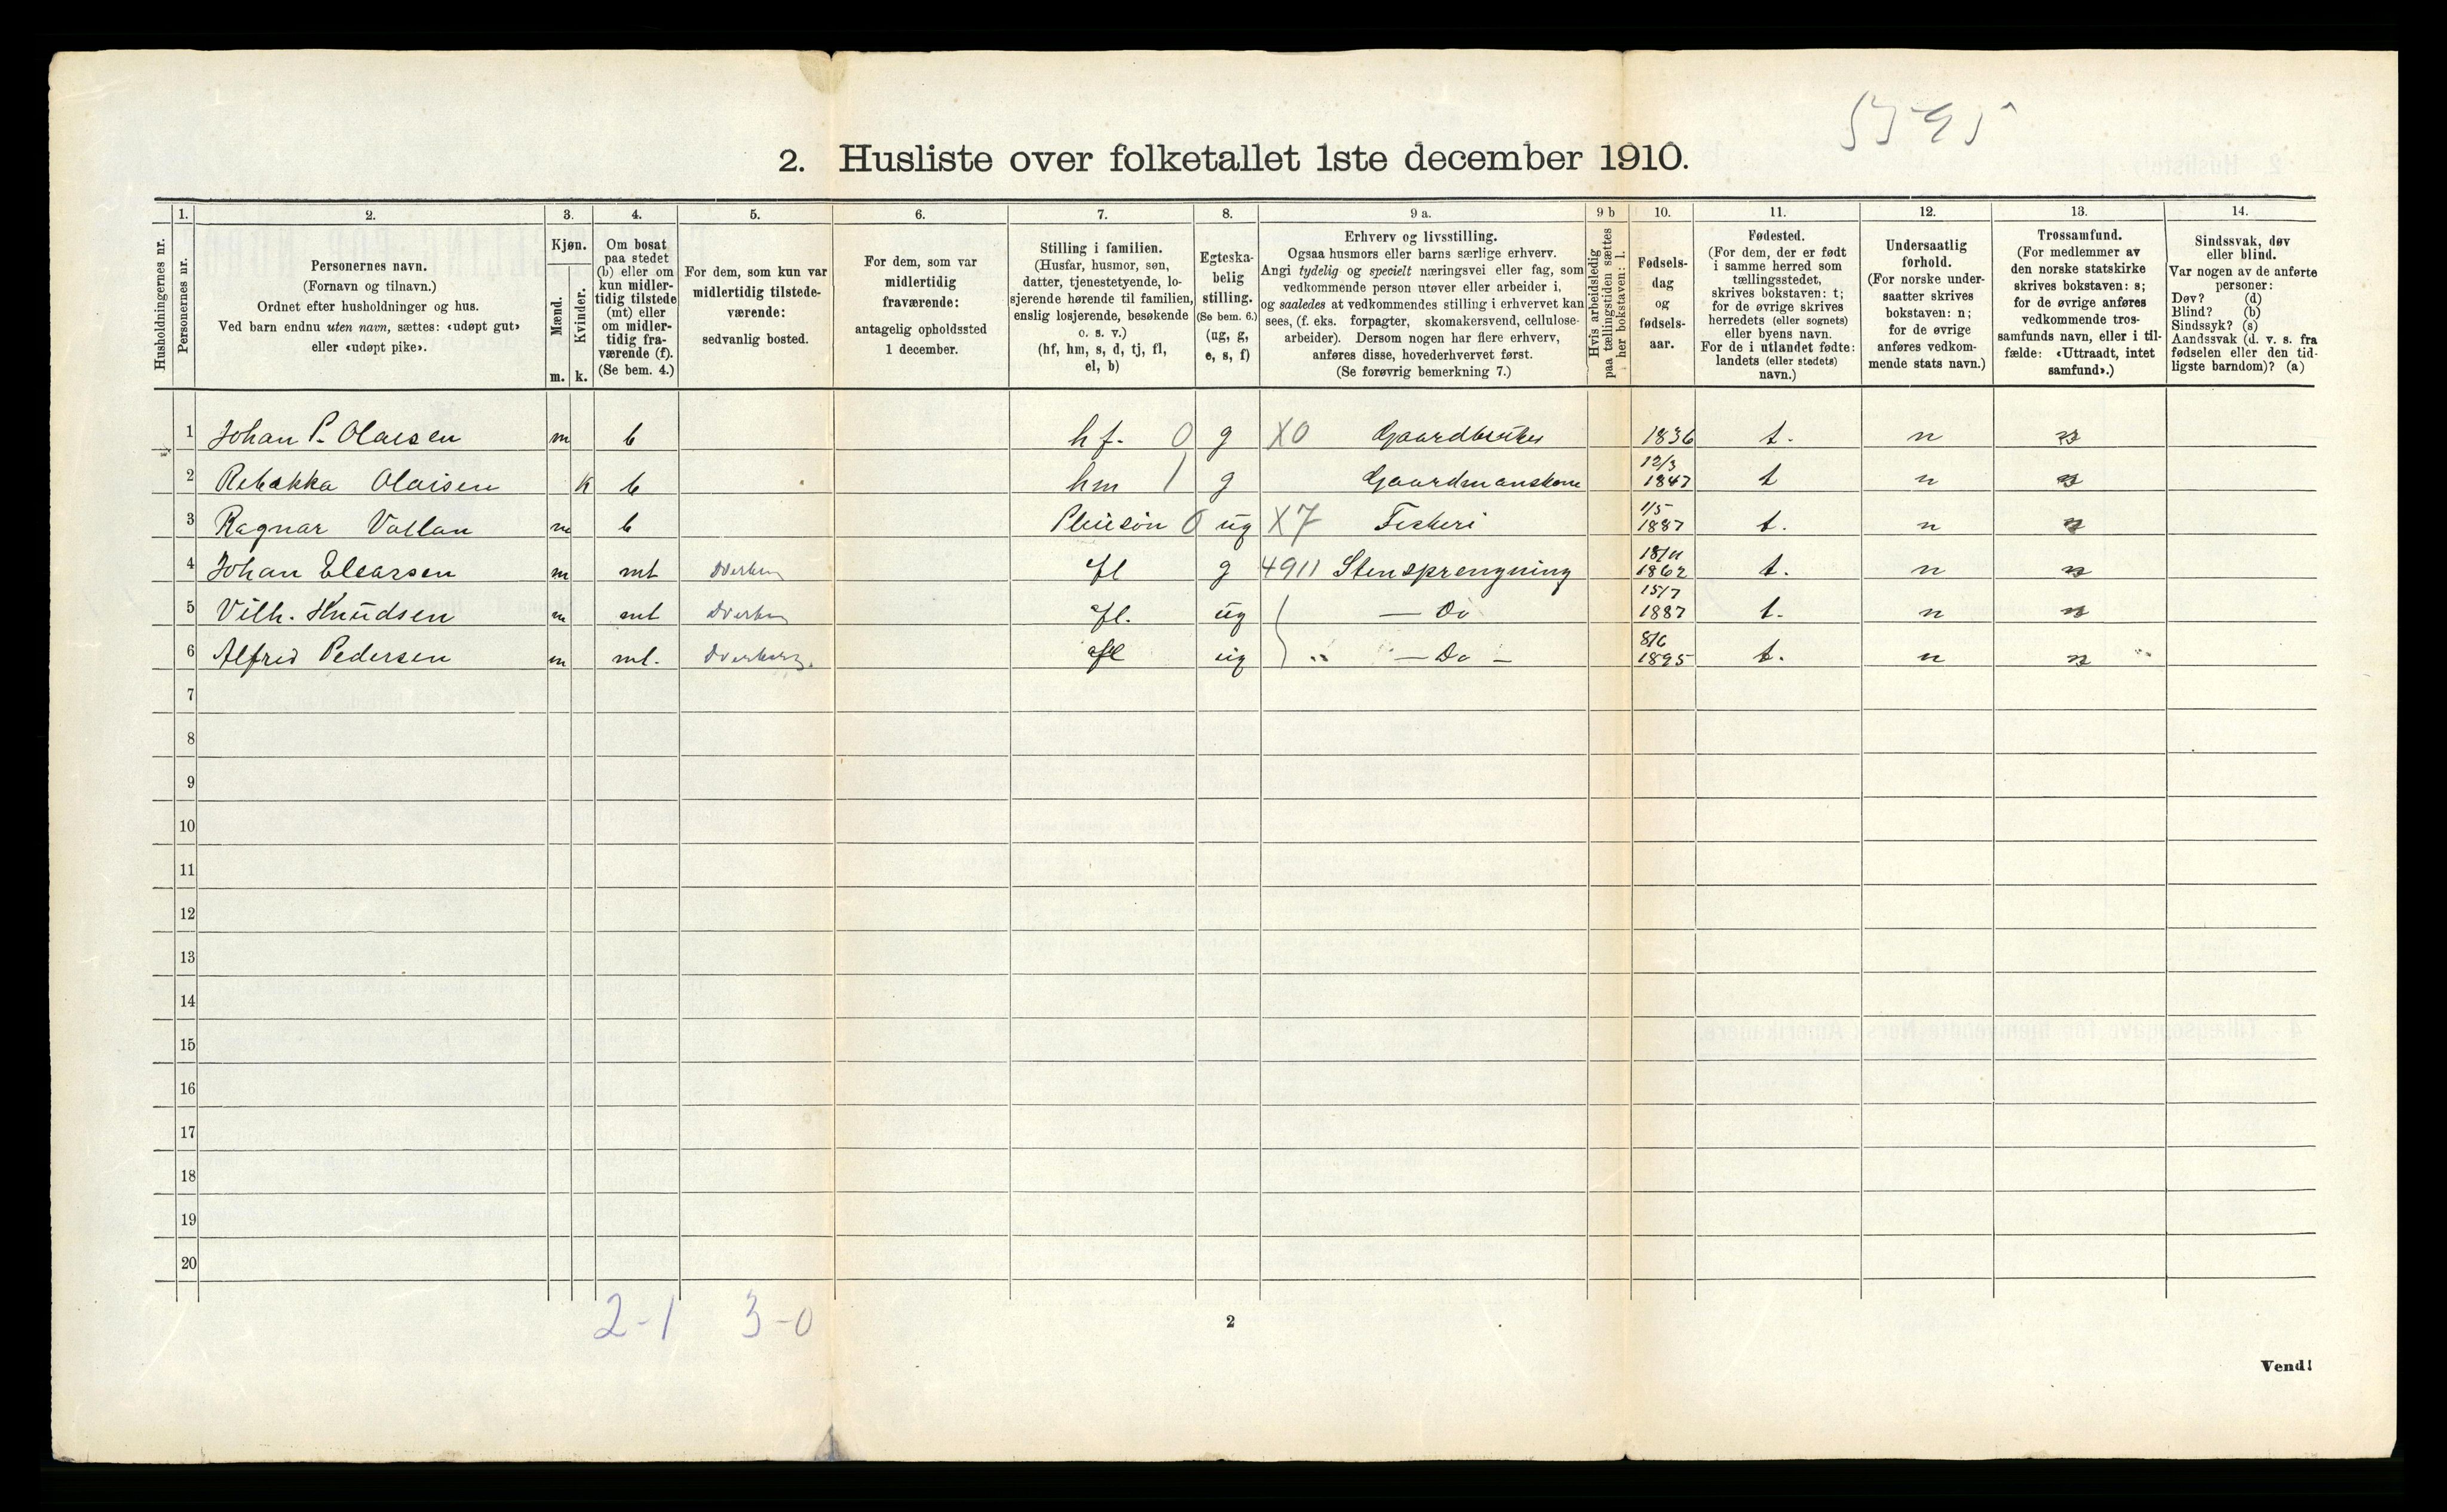 5595
2. Husliste over folketallet 1ste december 1910.
1. 2. 3. 4. 5. 6. 7. 8. 9 a. 9 b 10. 11. 12. 13. 14.
Husholdningernes nr.
Personernes nr.
Personernes navn.
(Fornavn og tilnavn.)
Ordnet efter husholdninger og hus.
Ved barn endnu uten navn, sættes: «udøpt gut»
eller «udøpt pike».
Kjøn.
Mænd.
Kvinder.
m. k.
Om bosat
paa stedet
(b) eller om
kun midler-
tidig tilstede
(mt) eller
om midler-
tidig fra-
værende (f).
(Se bem. 4.)
For dem, som kun var
midlertidig tilstede-
værende:
sedvanlig bosted.
For dem, som var
midlertidig
fraværende:
antagelig opholdssted
1 december.
Stilling i familien.
(Husfar, husmor, søn,
datter, tjenestetyende, lo-
sjerende hørende til familien,
enslig losjerende, besøkende
o. s. v.)
(hf, hm, s, d, tj, fl,
el, b)
Egteska-
belig
stilling.
(Se bem. 6.)
(ug, g,
e, s, f)
Erhverv og livsstilling.
Ogsaa husmors eller barns særlige erhverv.
Angi tydelig og specielt næringsvei eller fag, som
vedkommende person utøver eller arbeider i,
og saaledes at vedkommendes stilling i erhvervet kan
sees, (f. eks. forpagter, skomakersvend, cellulose-
arbeider). Dersom nogen har flere erhverv,
anføres disse, hovederhvervet først.
(Se forøvrig bemerkning 7.)
Hvis arbeidsledig
paa tællingstiden sættes
her bokstaven: l.
Fødsels-
dag
og
fødsels-
aar.
Fødested.
(For dem, der er født
i samme herred som
tællingsstedet,
skrives bokstaven: t;
for de øvrige skrives
herredets (eller sognets)
eller byens navn.
For de i utlandet fødte:
landets (eller stedets)
navn.)
Undersaatlig
forhold.
(For norske under-
saatter skrives
bokstaven: n;
for de øvrige
anføres vedkom-
mende stats navn.)
Trossamfund.
(For medlemmer av
den norske statskirke
skrives bokstaven: s;
for de øvrige anføres
vedkommende tros-
samfunds navn, eller i til-
fælde: «Uttraadt, intet
samfund».)
Sindssvak, døv
eller blind.
Var nogen av de anførte
personer:
Døv? (d)
Blind? (b)
Sindssyk? (s)
Aandssvak (d. v. s. fra
fødselen eller den tid-
ligste barndom)? (a)
1 Johan P. Olaisen m b hf. 0 g X0 Gaardbruker 1836 t. n s
12/3
2 Rebekka Olaisen k b hm 1 g Gaardmanskone 1847 t n s
1/5
3 Ragnar Vollan m b Pleiesön 0 ug X7 Fiskeri 1887 t. n s
18/11
4 Johan Elearsen m mt Dverberg fl g 4911 Stensprengning 1862 t. n s
15/7
5 Vilh. Knudsen m mt Dverberg fl. ug — Do 1887 t. n s
8/6
6 Alfred Pedersen m mt. Dverberg. fl ug " — Do — 1895 t. n s
7
8
9
10
11
12
13
14
15
16
17
18
19
20
2-1 3-0
2
Vend!